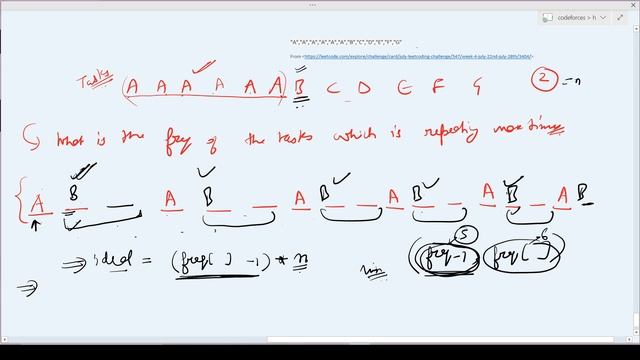 codeforces > h
"A","A","A","A","A","A","B","C","D","E","F","G"
From <https://leetcode.com/explore/challenge/card/july-leetcoding-challenge/547/week-4-july-22nd-july-28th/3404/>
Tasks (A A A A A A) B C D E F G 2 = n
What is the freq of the tasks which is repeating max times
A B A B A B A B A B A B
5 6
⇒ ideal = (freq[ ] - 1) * n min ((freq - 1) freq[ ])
⇒